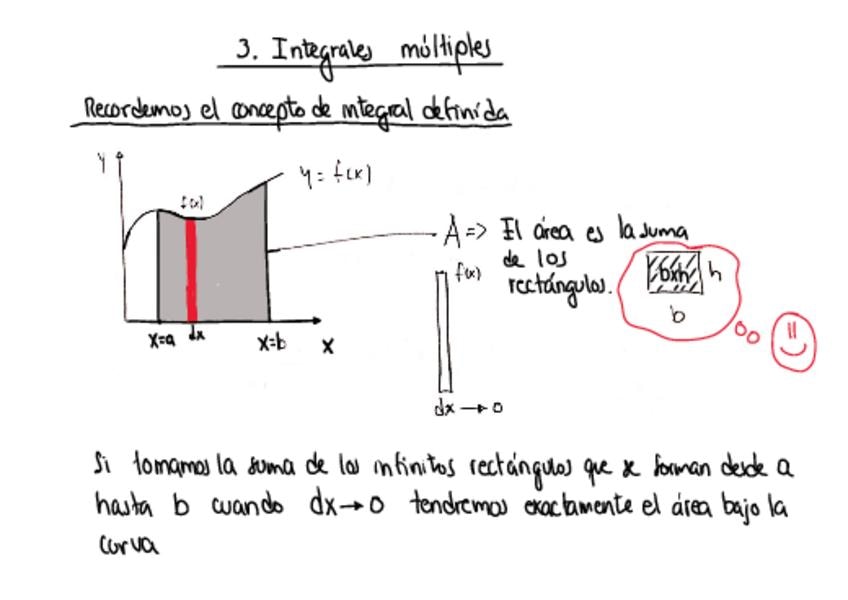 3. Integrales múltiples
Recordemos el concepto de integral definida
y
y = f(x)
f(x)
A => El área es la suma
de los
rectángulos.
f(x)
bxh
h
b
x=a
dx
x=b
x
dx → 0
Si tomamos la suma de los infinitos rectángulos que se forman desde a
hasta b cuando dx → 0 tendremos exactamente el área bajo la
curva